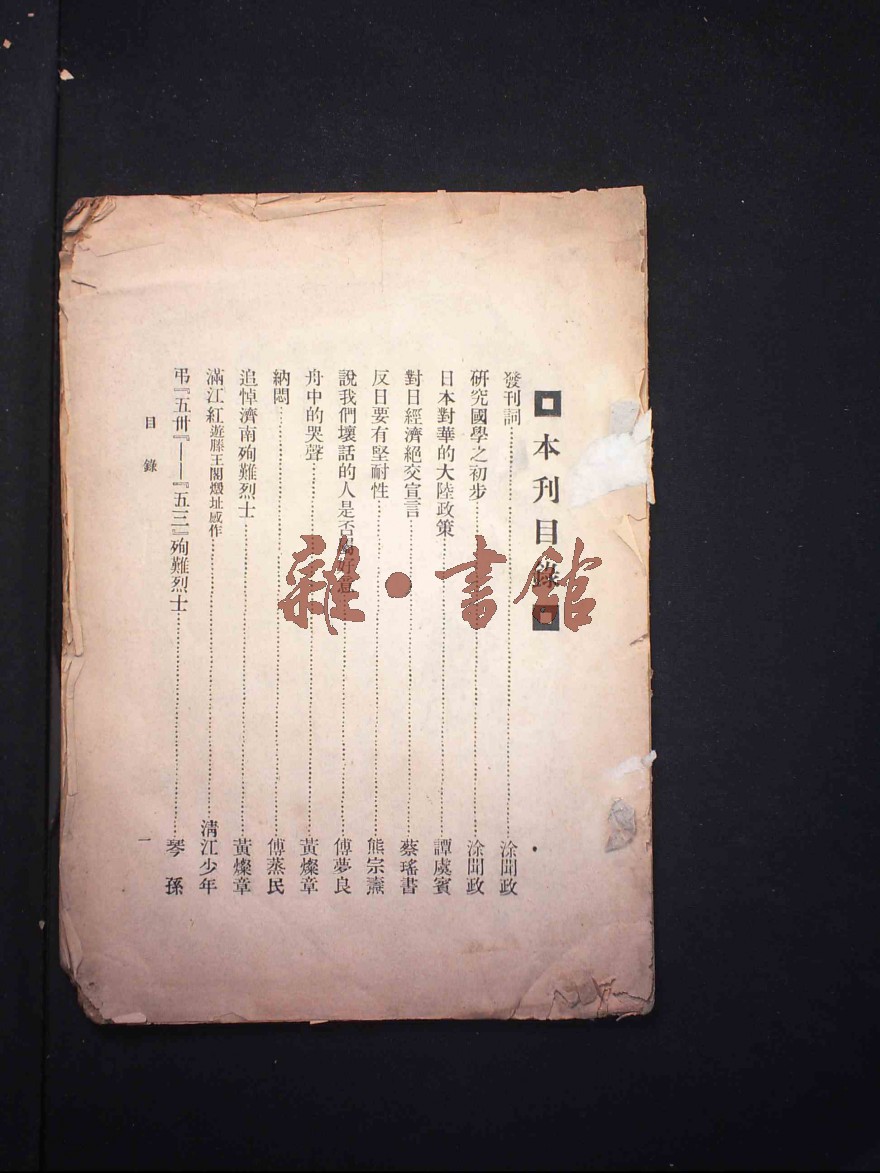 本刊目錄
發刊詞……涂聞政
研究國學之初步……涂聞政
日本對華的大陸政策……譚虞賓
對日經濟絕交宣言……蔡瑤書
反日要有堅耐性……熊宗燾
說我們壞話的人是否屬好意……傅夢良
舟中的哭聲……黃燦章
納悶……傅蒸民
追悼濟南殉難烈士……黃燦章
滿江紅遊滕王閣燬址感作……清江少年
弔『五卅』——『五三』殉難烈士……琴孫
目錄
一
雜·書館